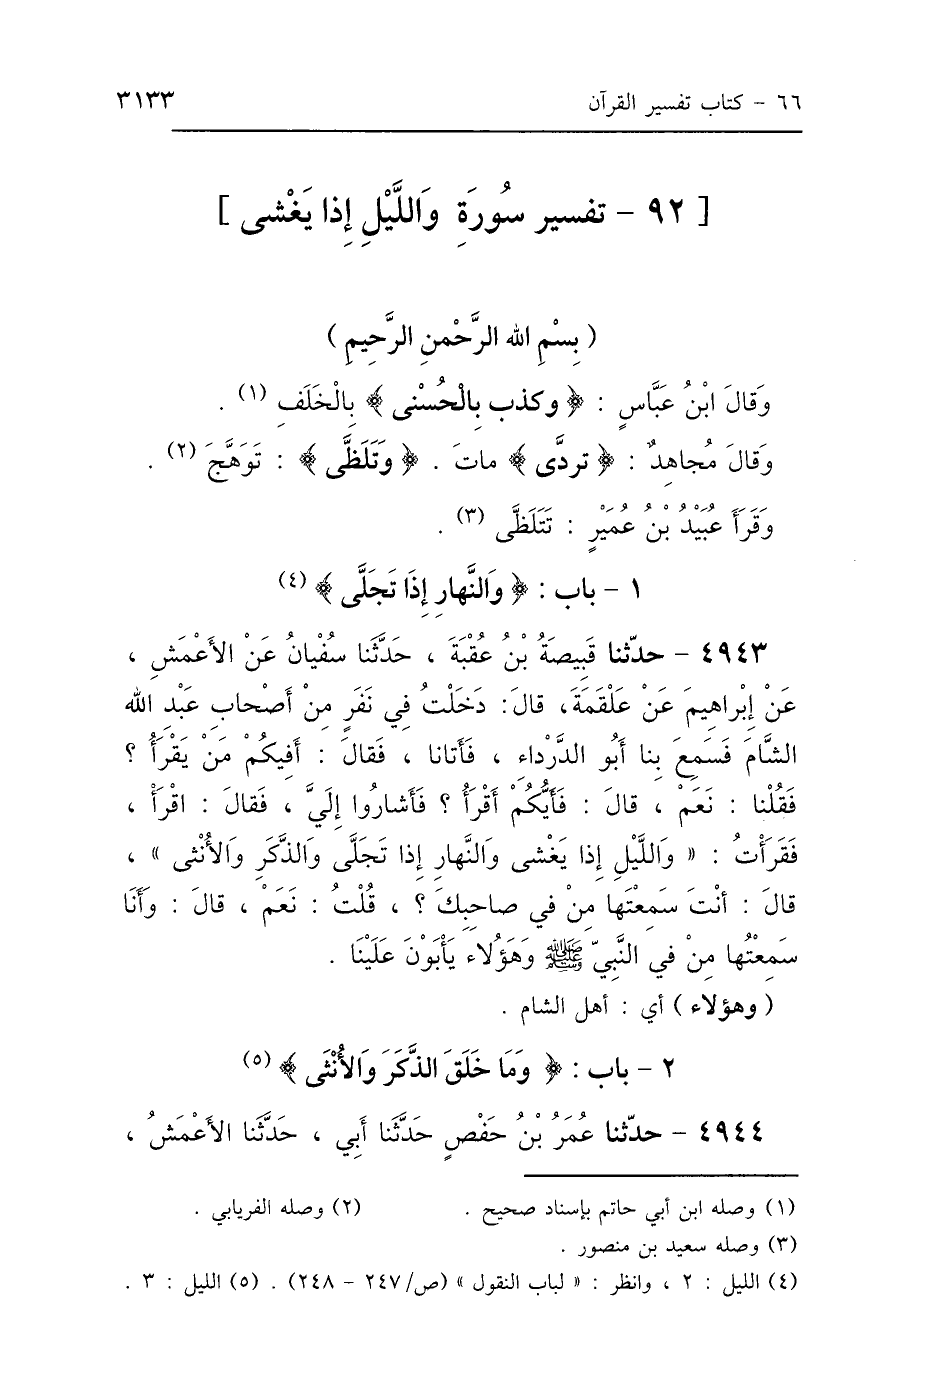 ٦٦ - كتاب تفسير القرآن ٣١٣٣
[ ٩٢ - تفسير سُورَةِ وَاللَّيْلِ إِذا يَغْشى ]
( بِسْمِ الله الرَّحْمنِ الرَّحِيمِ )
وَقالَ ابْنُ عَبَّاسٍ : ﴿ وكذب بِالْحُسْنى ﴾ بِالْخَلَفِ (١) .
وَقالَ مُجاهِدٌ : ﴿ تردَّى ﴾ ماتَ . ﴿ وَتَلَظَّى ﴾ : تَوَهَّجَ (٢) .
وَقَرَأَ عُبَيْدُ بْنُ عُمَيْرٍ : تَتَلَظَّى (٣) .
١ - باب : ﴿ وَالنَّهارِ إِذَا تَجَلَّى ﴾ (٤)
٤٩٤٣ - حدّثنا قَبِيصَةُ بْنُ عُقْبَةَ ، حَدَّثَنا سُفْيانُ عَنْ الأَعْمَشِ ،
عَنْ إِبْراهِيمَ عَنْ عَلْقَمَةَ، قالَ: دَخَلْتُ فِي نَفَرٍ مِنْ أَصْحابِ عَبْدِ الله
الشَّامَ فَسَمِعَ بِنا أَبُو الدَّرْداءِ ، فَأَتانا ، فَقالَ : أَفِيكُمْ مَنْ يَقْرَأُ ؟
فَقُلْنا : نَعَمْ ، قالَ : فَأَيُّكُمْ أَقْرَأُ ؟ فَأَشارُوا إِلَيَّ ، فَقالَ : اقْرَأْ ،
فَقَرَأْتُ : « وَاللَّيْلِ إِذا يَغْشى وَالنَّهارِ إِذا تَجَلَّى وَالذَّكَرِ وَالأُنْثى » ،
قالَ : أَنْتَ سَمِعْتَها مِنْ فِي صاحِبِكَ ؟ ، قُلْتُ : نَعَمْ ، قالَ : وَأَنَا
سَمِعْتُها مِنْ فِي النَّبِيّ ﷺ وَهَؤُلاءِ يَأْبَوْنَ عَلَيْنَا .
( وهؤلاء ) أي : أهل الشام .
٢ - باب : ﴿ وَمَا خَلَقَ الذَّكَرَ وَالأُنْثَى ﴾ (٥)
٤٩٤٤ - حدّثنا عُمَرُ بْنُ حَفْصٍ حَدَّثَنا أَبِي ، حَدَّثَنا الأَعْمَشُ ،
(١) وصله ابن أبي حاتم بإسناد صحيح . (٢) وصله الفريابي .
(٣) وصله سعيد بن منصور .
(٤) الليل : ٢ ، وانظر : « لباب النقول » (ص/٢٤٧ - ٢٤٨) . (٥) الليل : ٣ .